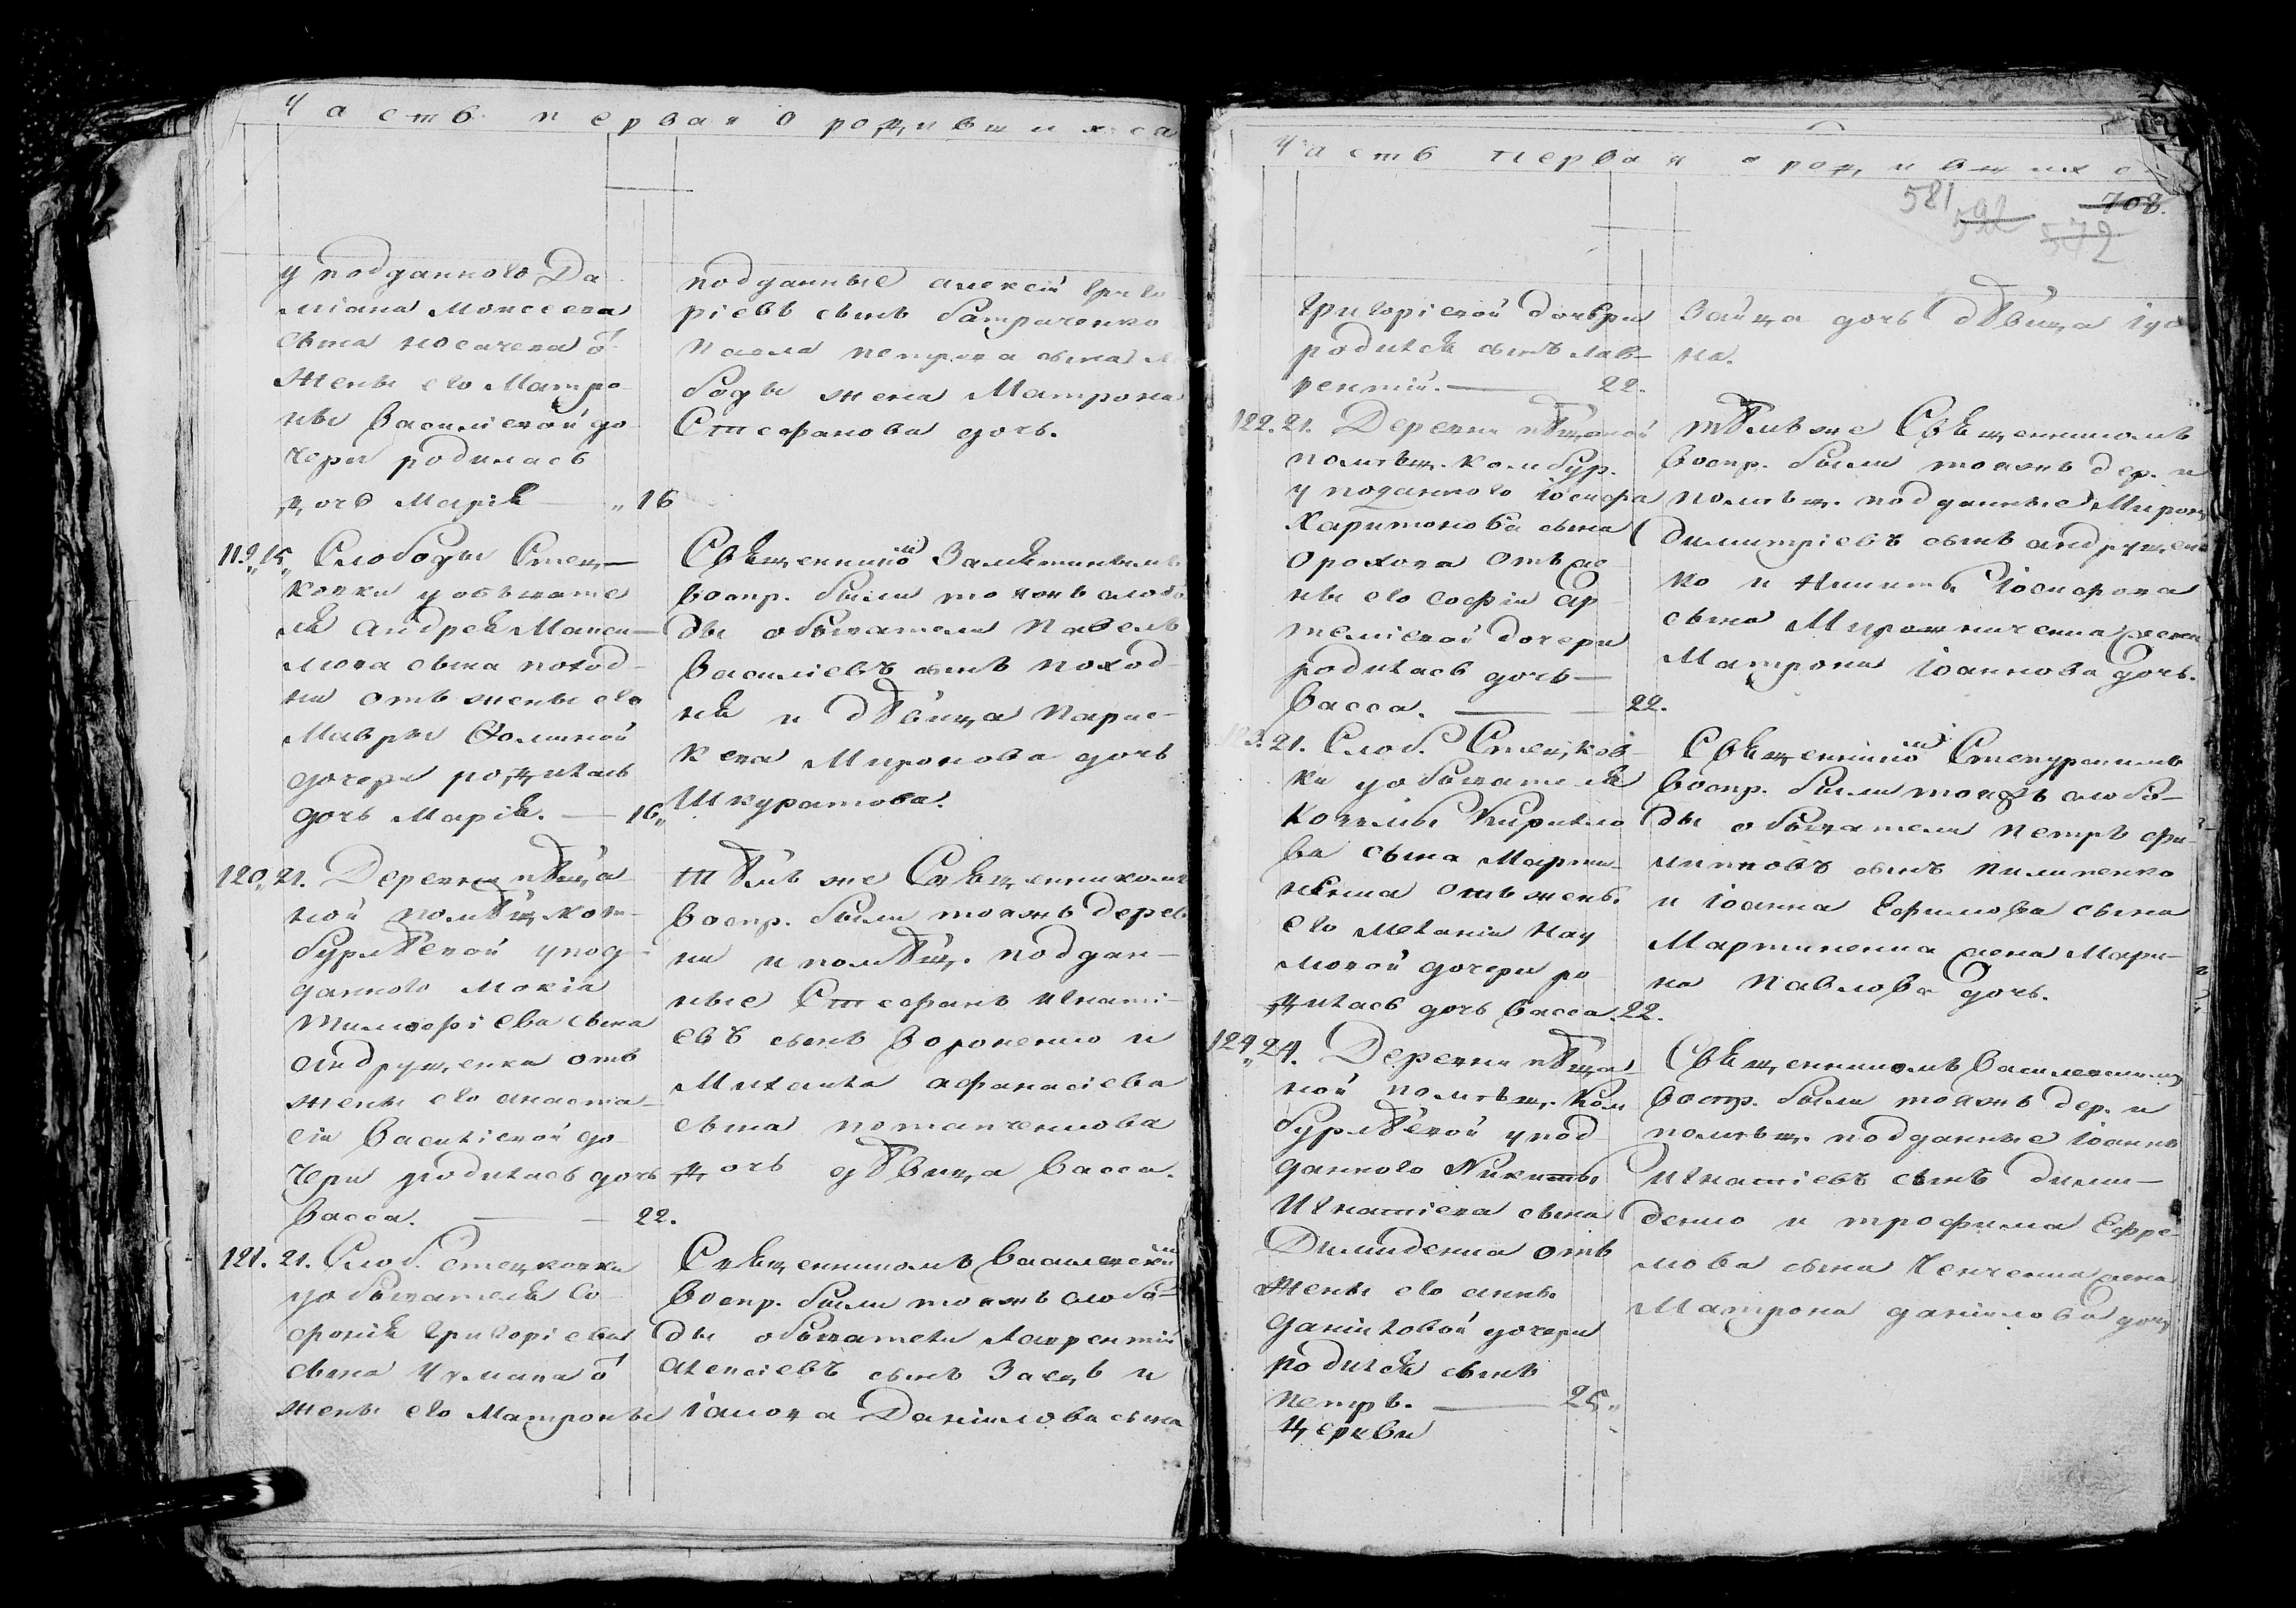 Часть первая О родившихся
у подданного Да
міана Моисеева
сына Носачева ѿ
жены его Матро
ны Василіевой до
чери родилась
дочь Марія — 16
подданные Алексій Григо
ріевъ сынъ
Павла Петрова сына
жена Матрона
Стефанова дочь.
119. 15. Слободы Стец—
ковки у обывате
ля Андрея Макси—
мова сына Поход—
ни отъ жены его
Мавры Фоминой
дочери родилась
дочь Марія. — 16.
Священнико Замятинымъ
воспр. были тояжъ слобо
ды обыватели Павелъ
Василіевъ сынъ Поход—
ня и дѣвица Парас—
кева Миронова дочь
Шкуратова.
120. 21. Деревни пѣща
ной помѣщ. Ком—
бурлѣевой у под—
данного Мокія
Тимофіева сына
Андрущенка отъ
жены его Анаста—
сіи Василіевой до
чери родилась дочь
Васса. — 22.
Тѣмъ же Священникомъ
воспр. были тояжъ дерев
ни и помѣщ. поддан—
ные Стефанъ Игнаті—
евъ сынъ Вороненко и
Михаила Афанасіева
сына Потапченкова
дочь дѣвица Васса.
121. 21. Слоб. Стецковки
у обывателя Со—
фонія Григоріева
сына Чумака ѿ
жены его Матроны
Священникомъ Василевским
воспр. были тояжъ слобо—
ды обыватели Лаврентій
Алексіевъ сынъ Заецъ и
Іакова Даніилова сына
Часть первая о родившихс
581 592 572 708.
Григоріевой дочери
родился сынъ Лав—
рентій. — 22.
Зайца дочь дѣвица Іуліа
на.
122. 21. Деревни пѣщаной
помѣщ. Комбур.
у поданного Іосифа
Харитонова сына
Орохова отъ же—
ны его Софіи Ар
теміевой дочери
родилась дочь—
Васса. — 22.
Тѣмъ же Священникомъ
воспр. были тояжъ дер. и
помѣщ. подданные Миронъ
Димитріевъ сынъ Андрущен
ко и Никиты Іосифова
сына Мирошниченка жена
Матрона Іоаннова дочь.
123. 21. Слоб. Стецков—
ки у обывателя
Козмы Кирило
ва сына Марти—
ненка отъ жены
его Меланіи Нау
мовой дочери ро—
дилась дочь Васса. 22.
Священнико Степурскимъ
воспр. были тояжъ слобо—
ды обыватели Петръ Фи—
липповъ сынъ Пилипенко
и Іоанна Ефимова сына
Мартиненка жена Мари—
на Павлова дочь.
124. 24. Деревни пѣща—
ной помѣщ. Ком
бурлѣевой у под
данного Никиты
Игнатіева сына
Димиденка отъ
жены его Анны
Даніиловой дочери
родился сынъ
Петръ. — 25.
Церкви
Священникомъ Василевскимъ
воспр. были тояжъ дер. и
помѣщ. подданные Іоаннъ
Игнатіевъ сынъ Дими—
денко и Трофима Ефре—
мова сына жена
Матрона Даніилова дочь